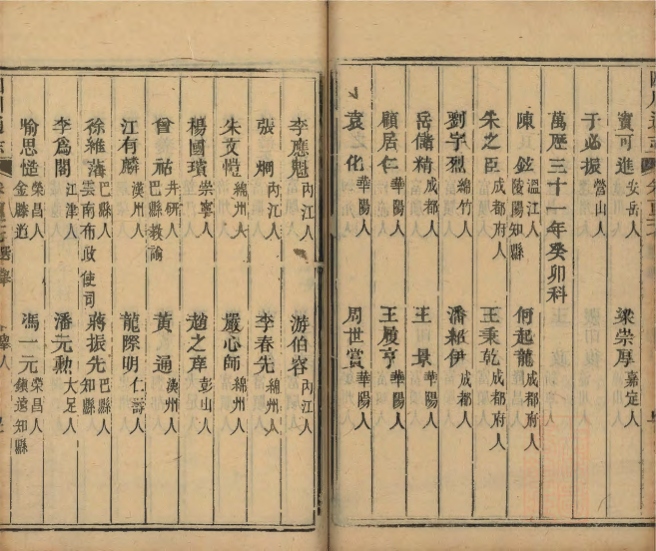 竇可進 安岳人 梁崇厚 嘉定人
于必振 營山人
萬歷三十一年癸卯科
陳鉉 溫江人 陵陽知縣 何起龍 成都府人
朱之臣 成都府人 王秉乾 成都府人
劉宇烈 綿竹人 潘紹伊 成都人
岳儲精 成都人 王景 華陽人
顧居仁 華陽人 王履亨 華陽人
袁之化 華陽人 周世賞 華陽人
李應魁 內江人 游伯容 內江人
張炯 內江人 李春先 綿州人
朱文愷 綿州人 嚴心師 綿州人
楊國璸 崇寧人 趙之 彭山人
曾祐 井研人 巴縣教諭 黃通 漢州人
江有麟 漢州人 龍際明 仁壽人
徐維藩 巴縣人 雲南布政使司 蔣振先 巴縣人 知縣
李爲閣 江津人 潘元勳 大足人
喻思慥 榮昌人 金滕道 馮一元 榮昌人 鎮遠知縣
四川通志
選舉
舉人